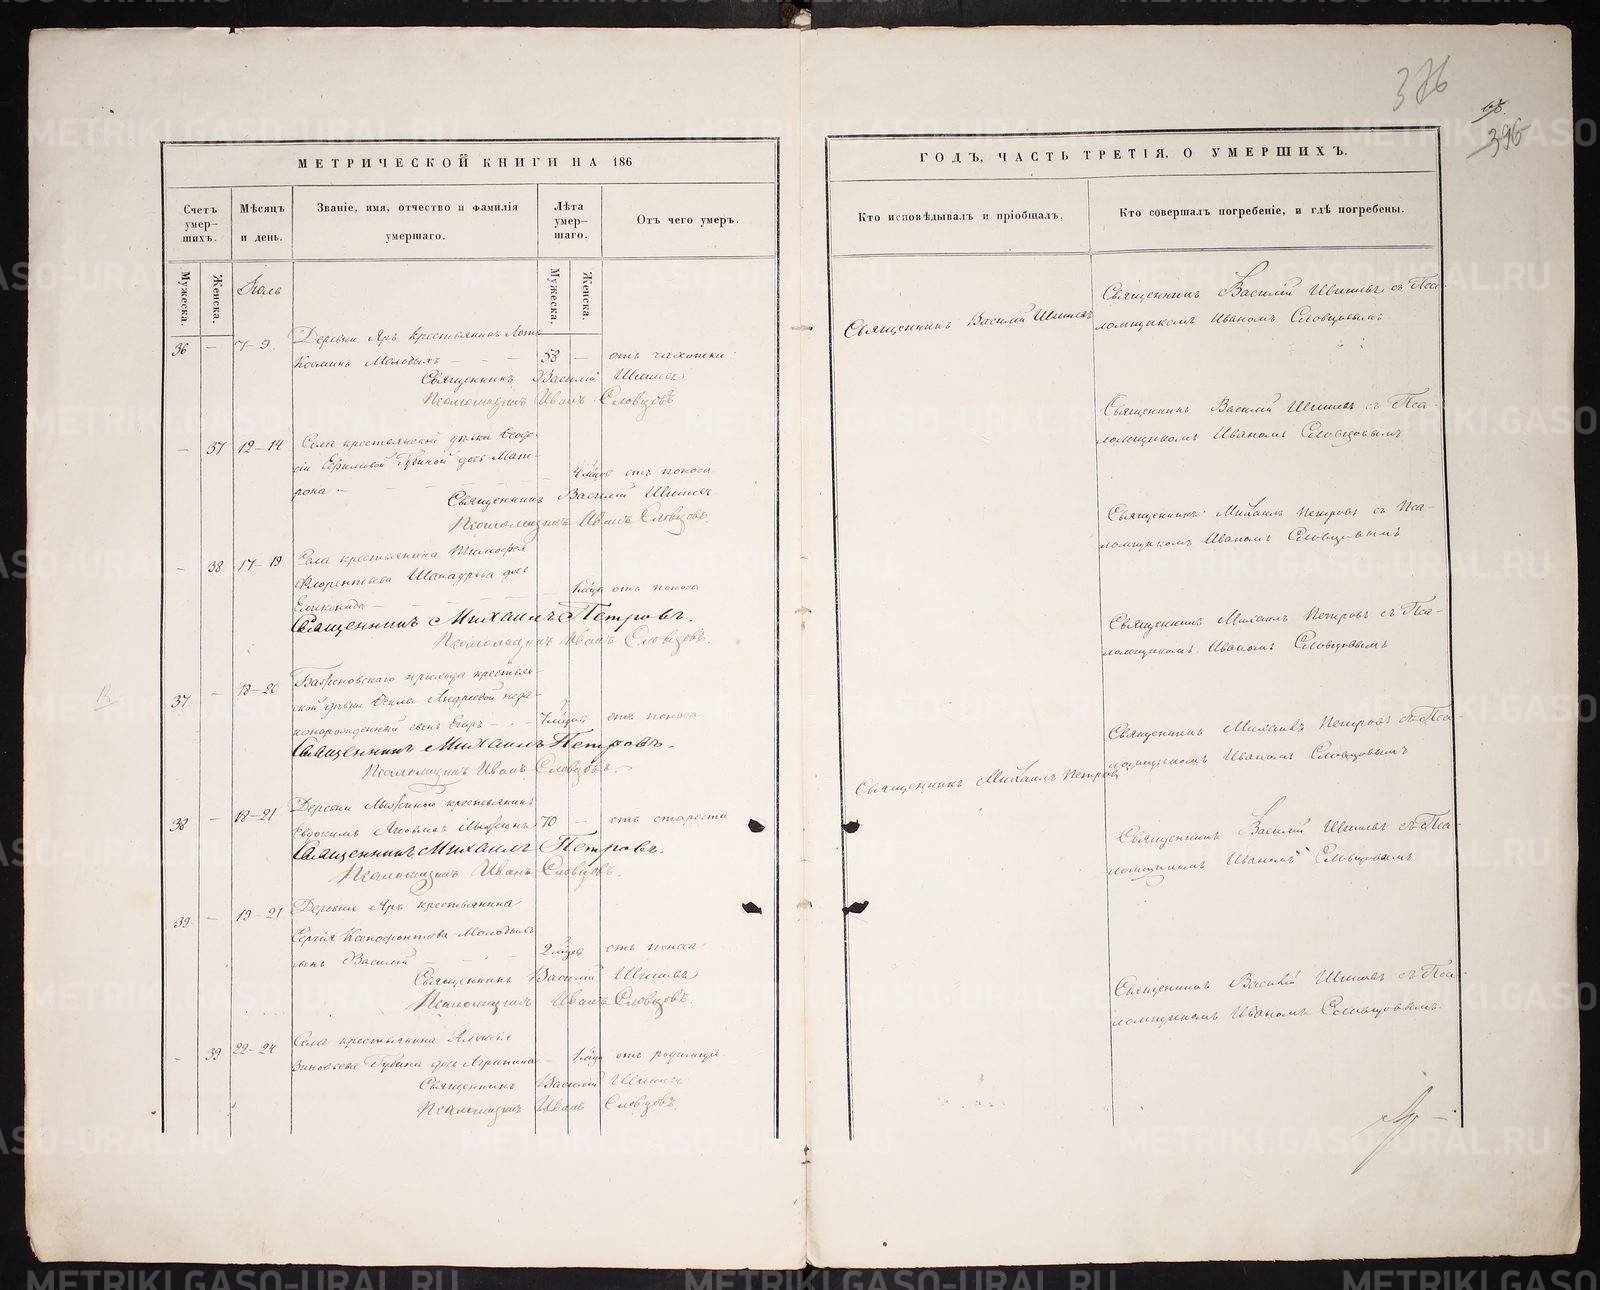 376
396
МЕТРИЧЕСКОЙ КНИГИ НА 186
Счетъ умер-шихъ.
Мѣсяцъ и день.
Званіе, имя, отчество и фамилія умершаго.
Лѣта умер-шаго.
Отъ чего умеръ.
Мужеска.
Женска.
Мужеска.
Женска.
Іюль
36 — 7–9 Деревни Яръ крестьянинъ
Косминъ Молодыхъ — — — 58 — отъ чахотки
Священникъ Василій
Псаломщикъ Иванъ Словцовъ
— 37 12–14 Села крестьянской дѣвки Ѳеодо-
сіи Ефимовой Губиной дочь Мат-
рона — 4 мѣсяц отъ поноса
Священникъ Василій
Псаломщикъ Иванъ Словцовъ.
— 38 17–19 Села крестьянина Тимофея
Флорентьева дочь
1 мѣсяца отъ поноса
Священникъ Михаилъ Петровъ.
Псаломщикъ Иванъ Словцовъ.
37 — 18–20 прихода крестьян-
ской дѣвки Ѳеклы Андреевой неза-
конорожденный сынъ Егоръ — 7 мѣсяцъ отъ поноса
Священникъ Михаилъ Петровъ.
Псаломщикъ Иванъ Словцовъ.
38 — 18–21 Деревни крестьянинъ
Евдокимъ 70 — отъ старости
Священникъ Михаилъ Петровъ.
Псаломщикъ Иванъ Словцовъ.
39 — 19–21 Деревни Яръ крестьянина
Сергія Ксенофонтова Молодыхъ
сынъ Василій — 2 мѣсяц отъ поноса
Священникъ Василій
Псаломщикъ Иванъ Словцовъ.
— 39 22–24 Села крестьянина Алексія
Зиновьева Губина дочь Агрипина — 1 мѣсяца отъ родимца
Священникъ Василій
Псаломщикъ Иванъ Словцовъ
ГОДЪ, ЧАСТЬ ТРЕТІЯ, О УМЕРШИХЪ.
Кто исповѣдывалъ и пріобщалъ.
Кто совершалъ погребеніе, и гдѣ погребены.
Священникъ Василій
Священникъ Василій съ Пса-
ломщикомъ Иваномъ Словцовымъ
Священникъ Василій съ Пса-
ломщикомъ Иваномъ Словцовымъ
Священникъ Михаилъ Петровъ съ Пса-
ломщикомъ Иваномъ Словцовымъ
Священникъ Михаилъ Петровъ съ Пса-
ломщикомъ Иваномъ Словцовымъ
Священникъ Михаилъ Петровъ
Священникъ Михаилъ Петровъ съ Пса-
ломщикомъ Иваномъ Словцовымъ
Священникъ Василій съ Пса-
ломщикомъ Иваномъ Словцовымъ
Священникъ Василій съ Пса-
ломщикомъ Иваномъ Словцовымъ.
METRIKI.GASO-URAL.RU